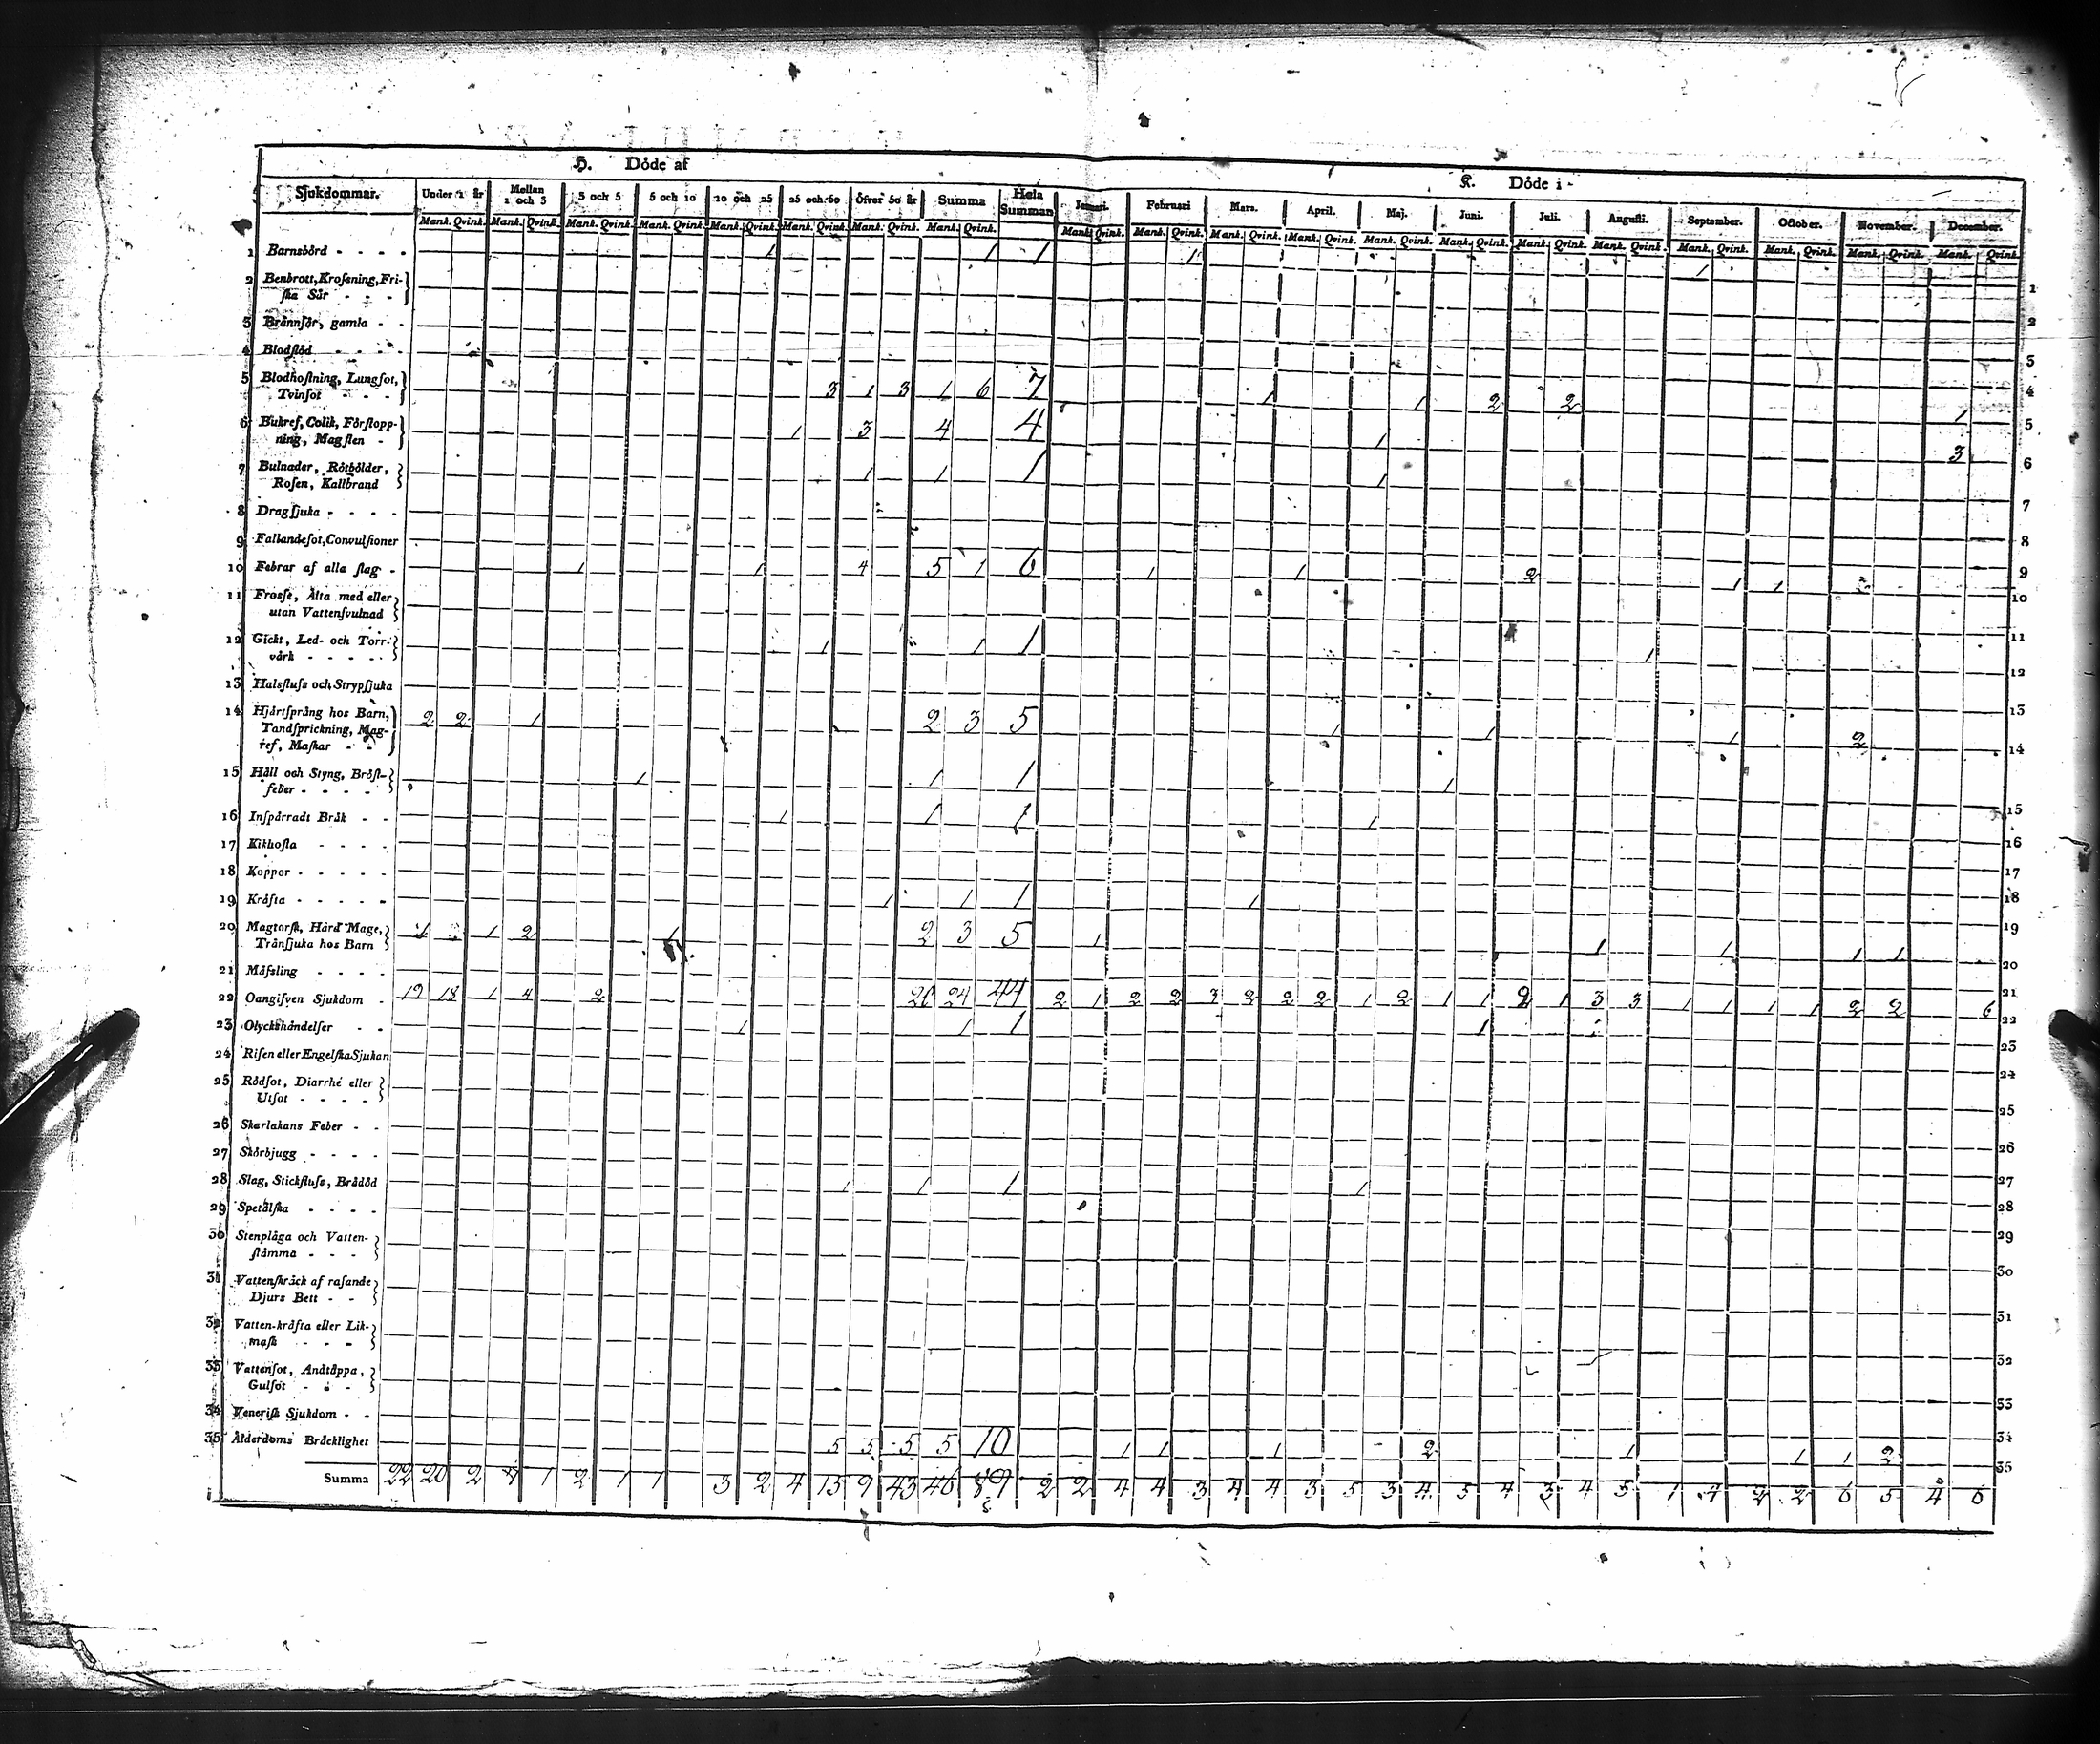 H. Döde af
K. Döde i -
Sjukdommar. Under 1 år Mellan 1 och 3 3 och 5 5 och 10 10 och 25 25 och 50 öfver 50 år Summa Hela Summan Januari. Februari Mars. April. Maj. Juni. Juli. Augusti. September. October. November. December.
Mank. Qvink. Mank. Qvink. Mank. Qvink. Mank. Qvink. Mank. Qvink. Mank. Qvink. Mank. Qvink. Mank. Qvink. Mank. Qvink. Mank. Qvink. Mank. Qvink. Mank. Qvink. Mank. Qvink. Mank. Qvink. Mank. Qvink. Mank. Qvink. Mank. Qvink. Mank. Qvink. Mank. Qvink. Mank. Qvink.
1 Barnsbörd - - - - 1 1 1 1 1
2 Benbrott, Krosſning, Fri-
ſka Sår - - - 2
3 Brännſår, gamla - - 3
4 Blodſlöd - - - - 4
5 Blodhoſtning, Lungſot,
Tvinſot - - - 3 1 3 1 6 7 1 1 2 2 1 5
6 Bukref, Colik, Förſtopp-
ning, Magſten - 1 3 4 4 1 3 6
7 Bulnader, Rötbölder,
Roſen, Kallbrand 1 1 1 1 7
8 Dragſjuka - - - - 8
9 Fallandeſot, Convulſioner 9
10 Febrar af alla ſlag - 1 1 4 5 1 6 1 1 2 1 1 10
11 Frosſe, Älta med eller
utan Vattenſvulnad 11
12 Gickt, Led- och Torr-
värk - - - - - 1 1 1 1 12
13 Halsfluſs och Strypſjuka 13
14 Hjärtſprång hos Barn,
Tandſprickning, Mag-
ref, Maſkar - - 2 2 1 2 3 5 1 1 1 2 14
15 Håll och Styng, Bröſt-
feber - - - - 1 1 1 1 15
16 Inſpärradt Bråk - - 1 1 1 1 16
17 Kikhoſta - - - - 17
18 Koppor - - - - - 18
19 Kräfta - - - - - 1 1 1 1 19
20 Magtorſk, Hård Mage,
Tränſjuka hos Barn 1 1 2 1 2 3 5 1 1 1 1 1 20
21 Mäſsling - - - - 21
22 Oangifven Sjukdom - 19 18 1 4 2 20 24 44 2 1 2 2 3 2 2 2 1 2 1 1 2 1 3 3 1 1 1 1 2 2 6 22
23 Olyckshändelſer - - 1 1 1 1 23
24 Riſen eller Engelſka Sjukan 24
25 Rödſot, Diarrhé eller
Utſot - - - - 25
26 Skarlakans Feber - - 26
27 Skörbjugg - - - - 27
28 Slag, Stickfluſs, Brådöd 1 1 1 1 28
29 Spetälſka - - - - 29
30 Stenplåga och Vatten-
ſtämma - - - 30
31 Vattenſkräck af raſande
Djurs Bett - - 31
32 Vatten-kräfta eller Lik-
maſk - - - 32
33 Vattenſot, Andtäppa,
Gulſot - - - 33
34 Veneriſk Sjukdom - - 34
35 Ålderdoms Bräcklighet 5 5 5 5 10 1 1 1 2 1 1 1 2 35
Summa 22 20 2 1 2 1 1 3 2 4 13 9 43 46 89 2 2 4 4 3 4 4 3 5 3 4 3 4 3 4 5 1 4 2 2 6 5 4 6